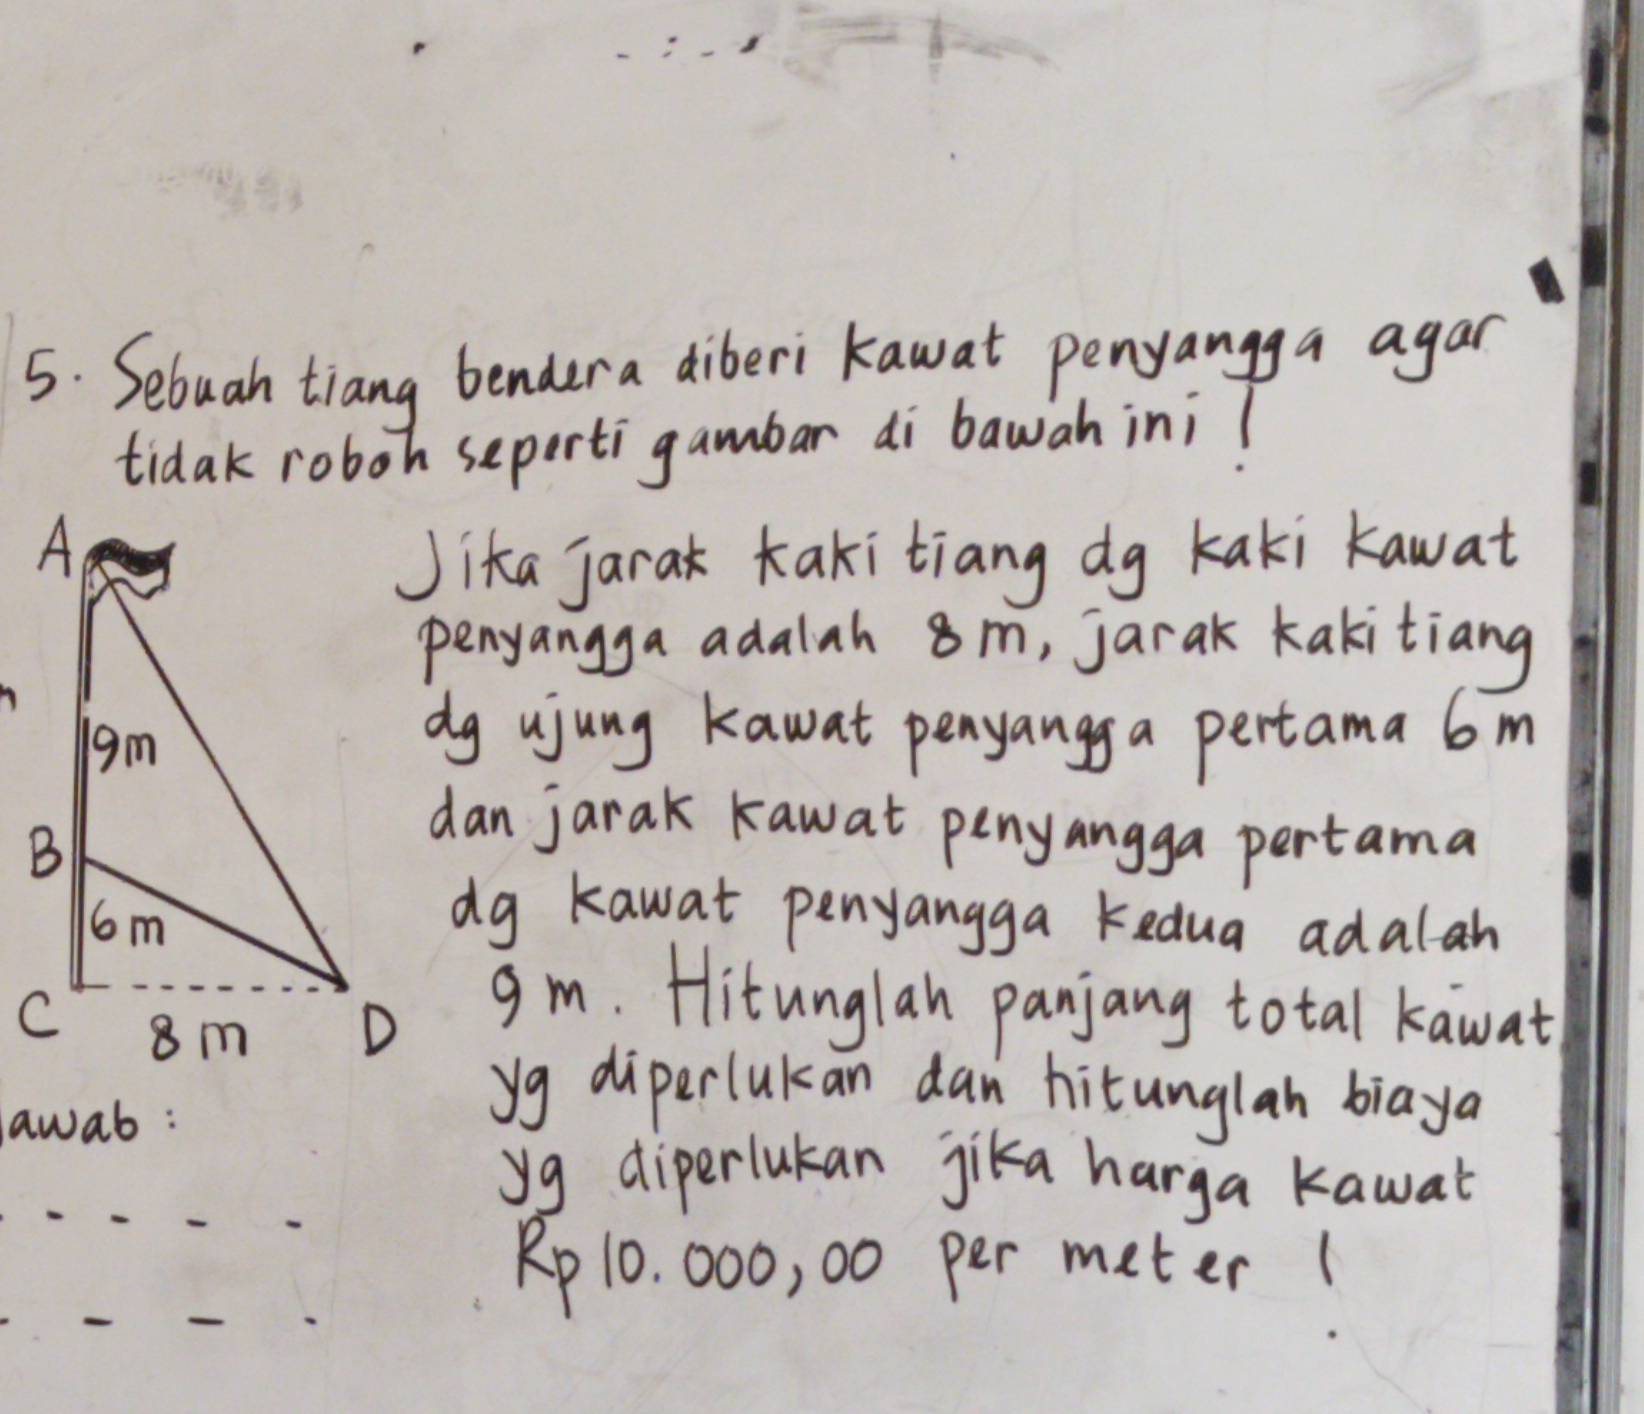 5. Sebuah tiang bendera diberi kawat penyangga agar
tidak roboh seperti gambar di bawah ini !
A
9m
B
6m
C
8m
D
Jika jarak kaki tiang dg kaki kawat
penyangga adalah 8 m, jarak kaki tiang
dg ujung kawat penyangga pertama 6 m
dan jarak kawat penyangga pertama
dg kawat penyangga kedua adalah
9 m. Hitunglah panjang total kawat
yg diperlukan dan hitunglah biaya
yg diperlukan jika harga kawat
Rp 10.000,00 per meter !
Jawab :